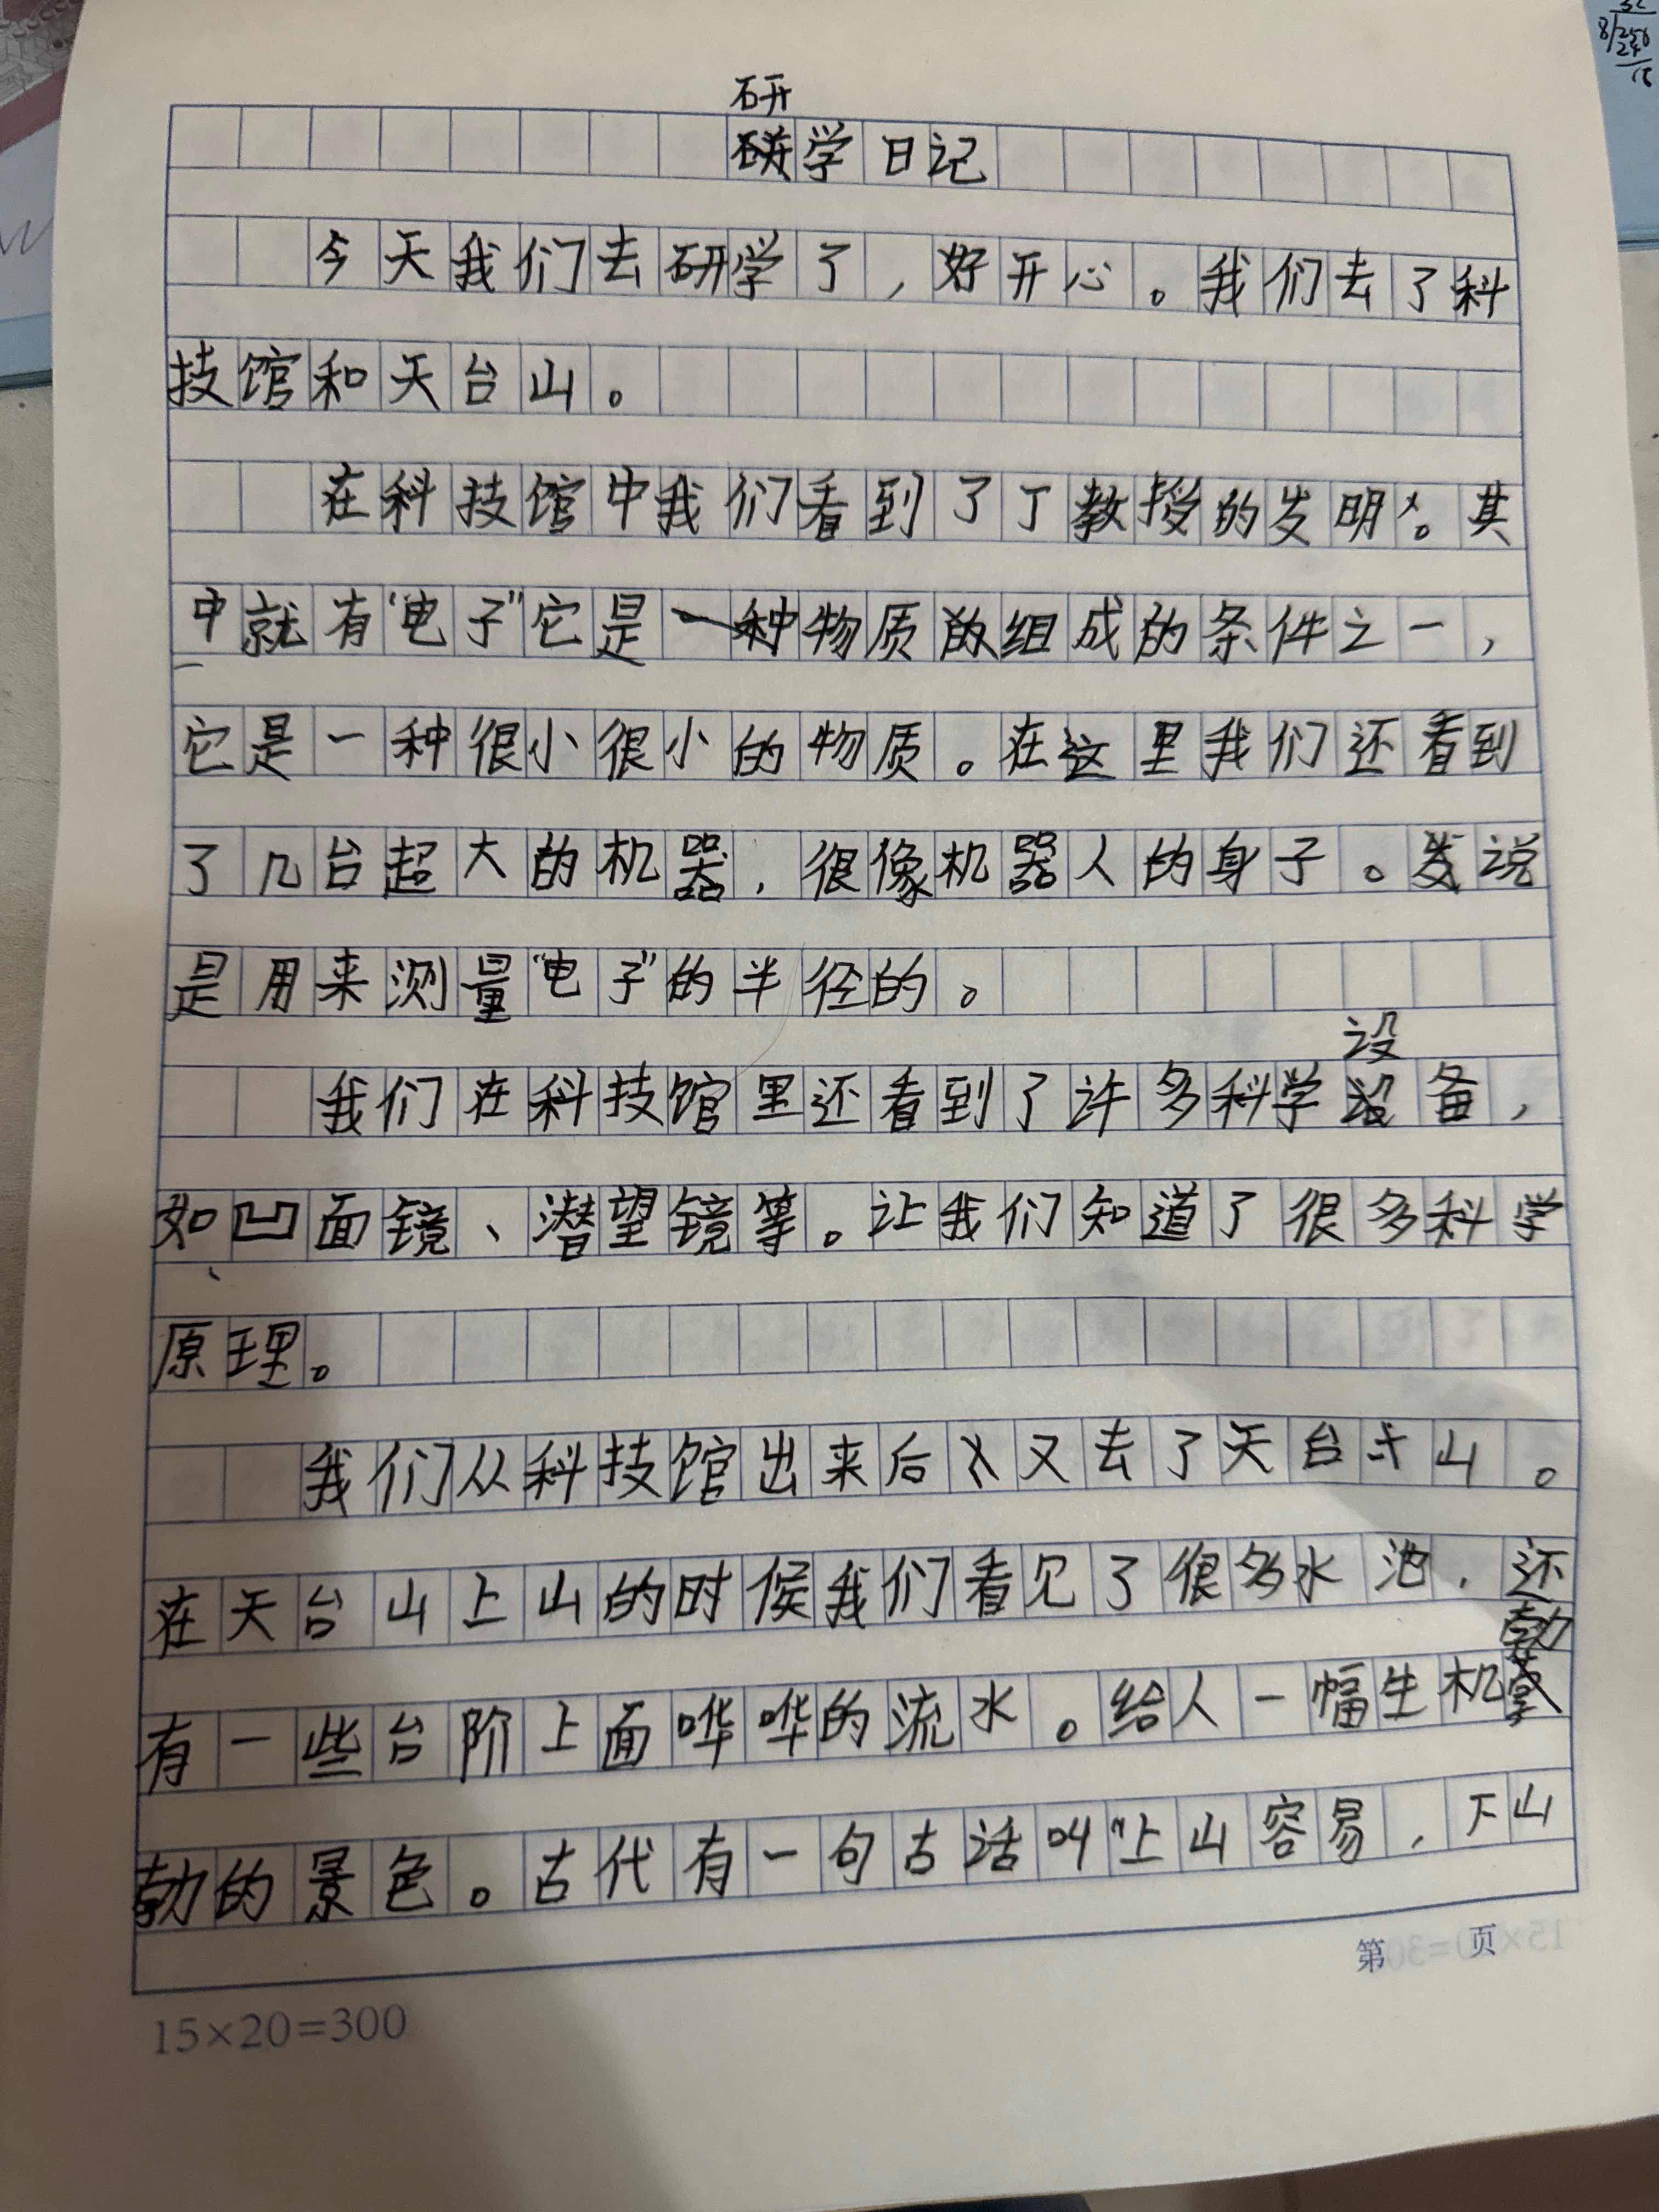 研
学日记
今天我们去研学了，好开心。我们去了科
技馆和天台山。
在科技馆中我们看到了丁教授的发明。其
中就有“电子”它是一种物质的组成的条件之一，
它是一种很小很小的物质。在这里我们还看到
了几台超大的机器，很像机器人的身子。说
是用来测量“电子”的半径的。
设
我们在科技馆里还看到了许多科学备，
如凹面镜、潜望镜等。让我们知道了很多科学
原理。
我们从科技馆出来后又去了天台山。
在天台山上山的时候我们看见了很多水池，还
勃
有一些台阶上面哗哗的流水。给人一幅生机
勃的景色。古代有一句古话叫“上山容易，下山
第 页
15×20=300